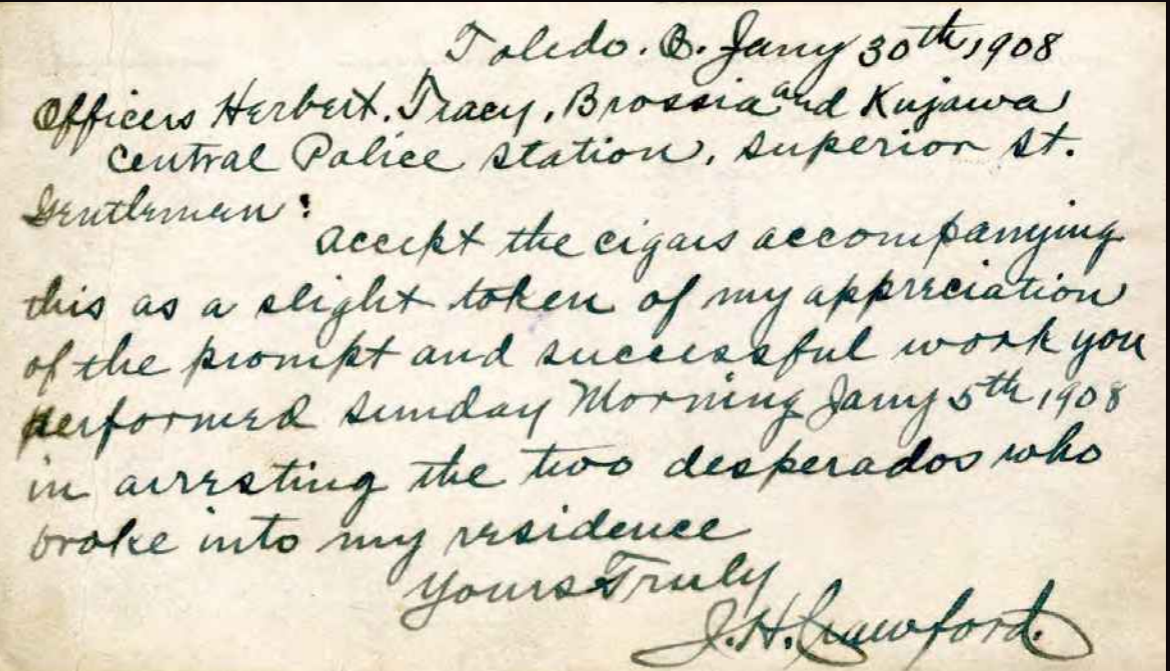 Toledo. O. Jany 30th, 1908
Officers Herbert, Tracy, Brossia and Kujawa
Central Police station, superior st.
Gentlemen:
Accept the cigars accompanying
this as a slight token of my appreciation
of the prompt and successful work you
performed sunday Morning Jany 5th 1908
in arresting the two desperados who
broke into my residence
Yours Truly
J. H. Crawford.